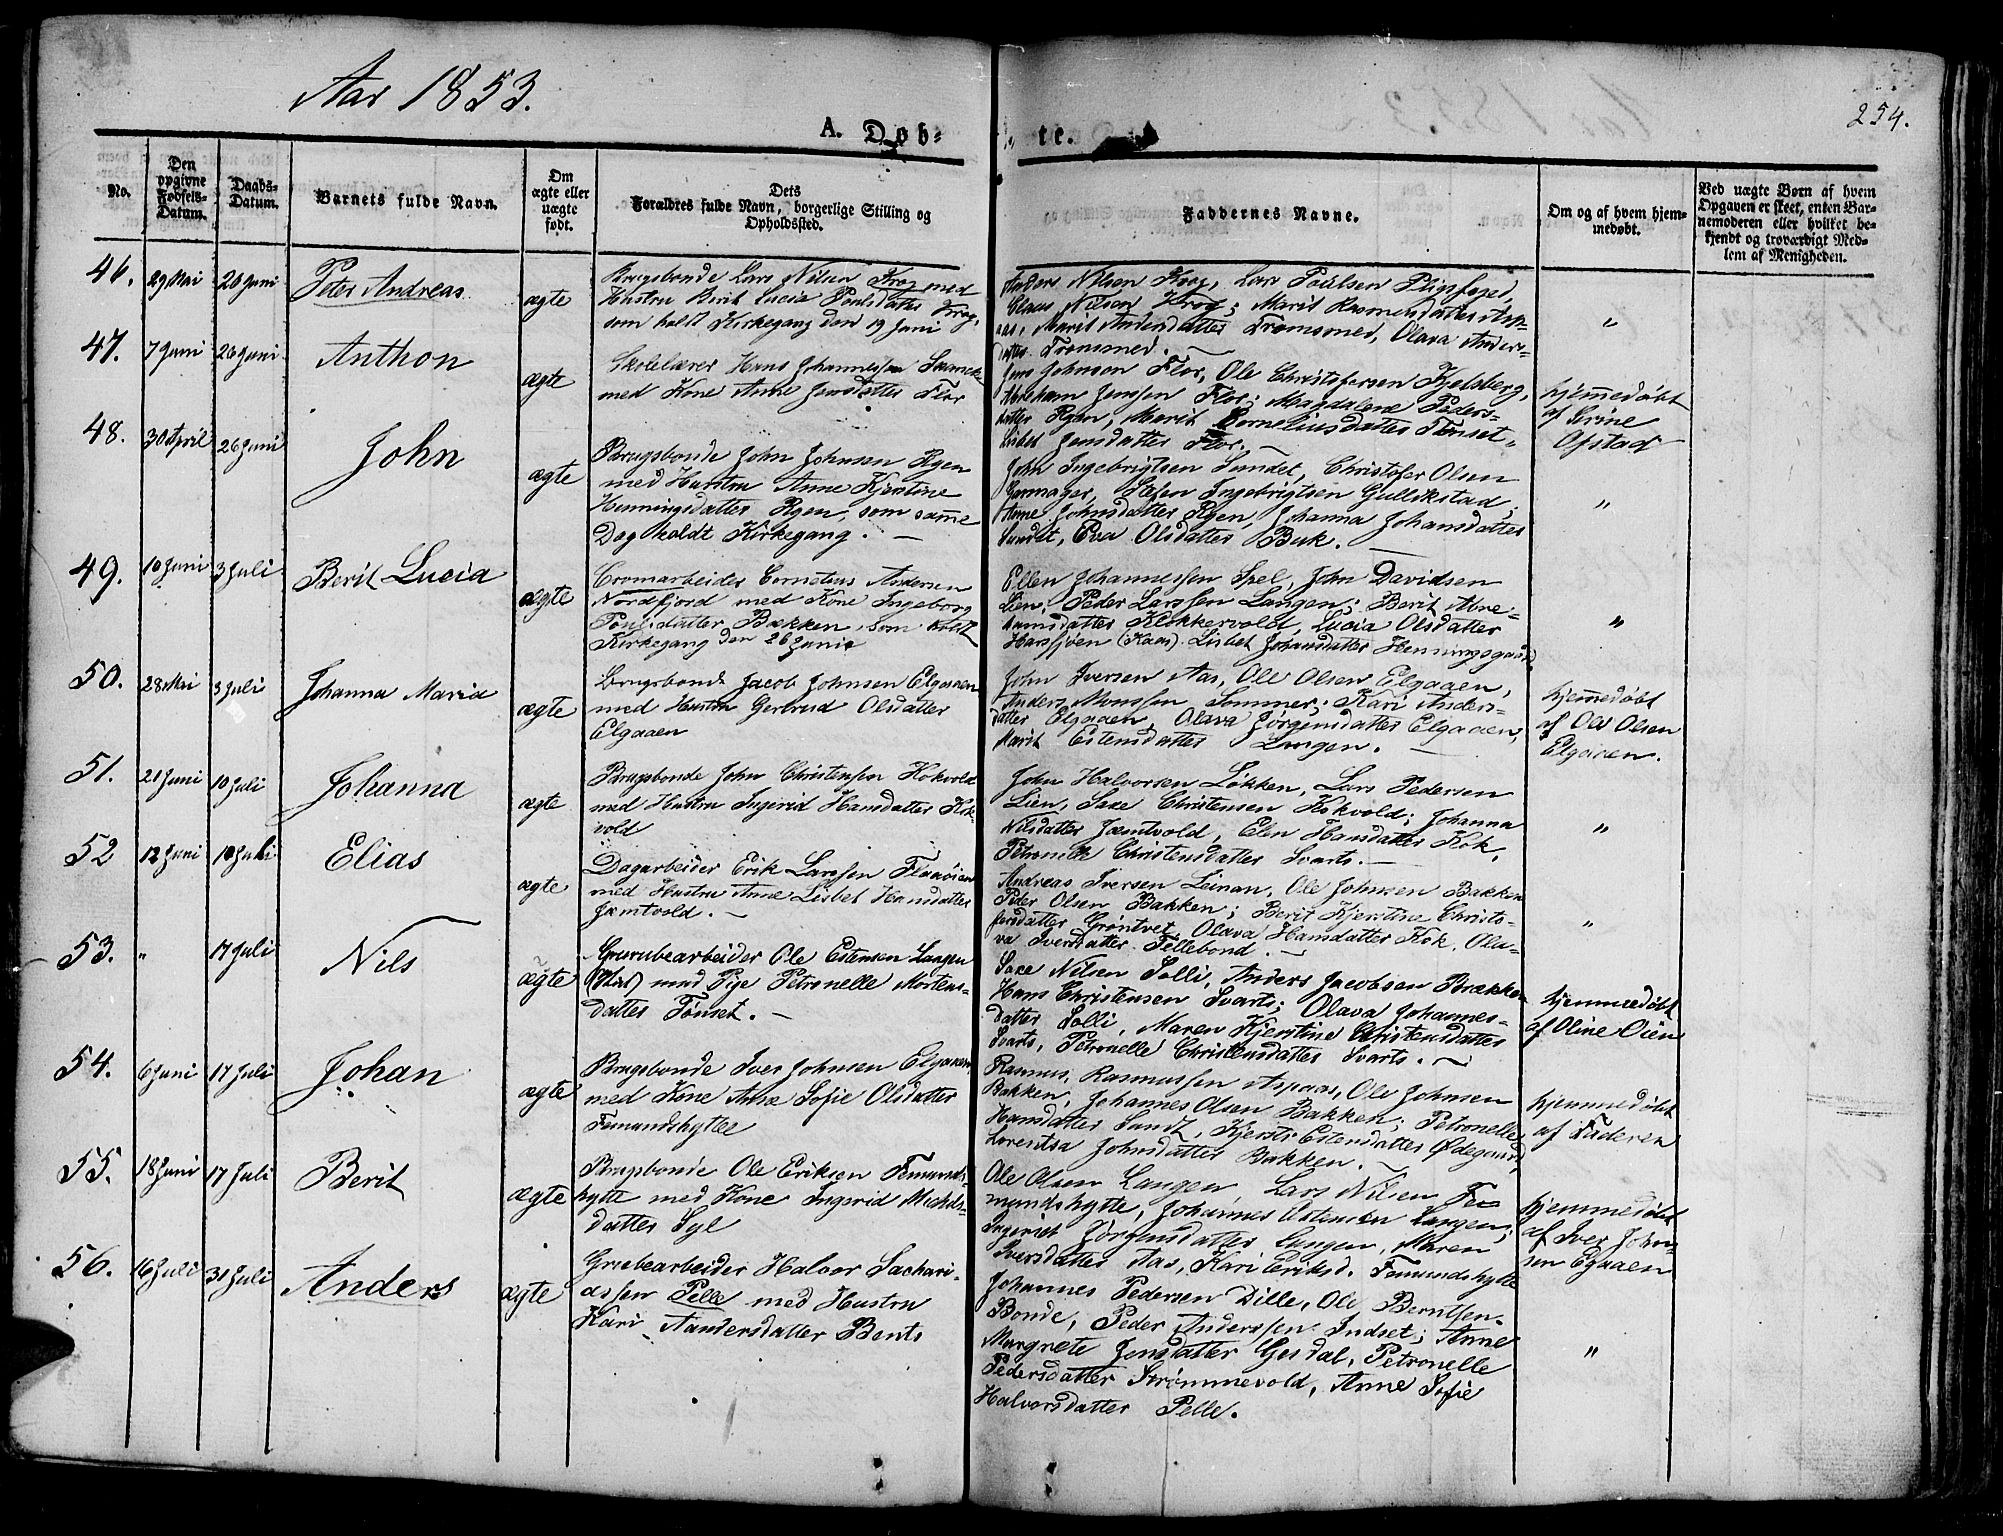 Aar 1853.
254.
A. Døb-
te.
No.
Den opgivne Fødsels-Datum.
Daabs-Datum.
Barnets fulde Navn.
Om ægte eller uægte født.
Dets Forældres fulde Navn, borgerlige Stilling og Opholdssted.
Faddernes Navne.
Om og af hvem hjem-medøbt.
Ved uægte Børn af hvem Opgaven er skeet, enten Bar-nemoderen eller hvilket be-kjendt og troværdigt Med-lem af Menigheden.
46. 29 Mai 26 Juni Peter Andreas ægte
Brugsbonde Lars Nilsen Krog med
Hustru Berit Lucia Poulsdatter Krog,
som holdt Kirkegang den 19 Juni
Anders Nilsen Krog, Lars Poulsen Pligsfoged,
Claus Nilsen Krog; Marit Rasmusdatter Asp-
aas, Marit Andersdatter Tromsmed, Olava Anders-
datter Tromsmed.
"
47. 7 Juni 26 Juni Anthon ægte
Skolelærer Hans Johannessen
med Kone Anne Jensdatter Flor
Jens Johnson Flor, Ole Christofersen Kjelsberg,
Abraham Jenssen Flor; Magdalene Peders-
datter Rgen, Marit Corneliusdatter Tønset,
Lisbet Jensdatter Flor.
hjemmedøbt
af Serine
Opstad
48. 30 April 26 Juni John ægte
Brugsbonde John Johnsen Rgen
med Hustru Anne Kjerstine
Henningsdatter Rgen, som samme
Dag holdt Kirkegang.
John Ingebrigtsen Sundet, Christofer Olsen
Ingebrigtsen Gullikstad;
Anne Johnsdatter Rgen, Johanna Johansdatter
Sundet, Eva Olsdatter Bak.
"
49. 10 Juni 3 Juli Berit Lucia ægte
Cromarbeider Cornelius Andersen
Nordfjord med Kone Ingeborg
Poulsdatter Bækken, som holdt
Kirkegang den 26 Juni
Ellen Johannessen Spel, John Davidsen
Lien; Peder Larssen Langen; Berit Abra-
hamsdatter Klokkervold, Lucia Olsdatter
Harssjøen (Kaas) Lisbet Johansdatter Henningsgaard
"
50. 28 Mai 3 Juli Johanna Maria ægte
Brugsbonde Jacob Johnsen Elgaaen
med Hustru Gertrud Olsdatter
Elgaaen
John Iversen Aas, Ole Olsen Elgaaen,
Anders Monssen Sommer; Kari Anders-
datter Elgaaen, Olava Jørgensdatter Elgaaen,
Marit Estensdatter Langen.
hjemmedøbt
af Ole Olsen
Elgaaen.
51. 21 Juni 10 Juli Johanna ægte
Brugsbonde John Christensen Kokvold
med Hustru Ingerid Hansdatter Kok-
vold
John Halvorsen Løkken, Lars Pedersen
Lien, Saxe Christensen Kokvold; Johanna
Nilsdatter Jæmtvold, Elen Hansdatter Kok,
Petronelle Christensdatter Svarts.
"
52 12 Juni 10 Juli Elias ægte
Dagarbeider Erik Larssen Flaaøien
med Hustru Anne Lisbet Hansdatter
Jæmtvold.
Andreas Iversen Leinan, Ole Johnsen Bakken
Peder Olsen Bakken; Berit Kjerstine Christo-
fersdatter Grøntvet, Olava Hansdatter Kok, Ola-
va Iversdatter Fellebond.
"
53. " 17 Juli Nils ægte
Grurubearbeider Ole Estensen Langen
med Pige Petronelle Mortens-
datter Tønset.
Saxe Nilsen Solli, Anders Jacobsen Brækken
Hans Christensen Svarts; Olava Johannes-
datter Solli, Maren Kjerstine Christensdatter
Svarts, Petronelle Christensdatter Svarts.
hjemmedøbt
af Oline Oien
54. 6 Juni 17 Juli Johan ægte
Brugsbonde Iver Johnsen Elgaaen
med Kone Anne Sofie Olsdatter
Femundshytte
Rasmus Rasmussen Aspaas, Ole Johnsen
Bakken, Johannes Olsen Bakken; Petronelle
Hansdatter Sundt, Kjersti Estensdatter Ødegaard,
Lorentsa Johnsdatter Bakken.
hjemmedøbt
af Faderen
55. 18 Juni 17 Juli Berit ægte
Brugsbonde Ole Eriksen Femunds-
hytte med Kone Ingerid Michels-
datter Syl
Ole Olsen Langen, Lars Nilsen Fe-
mundshytte, Johannes Estensen Langen;
Ingerid Jørgensdatter Langen, Maren
Iversdatter Aas, Kari Eriksd. Femundshytte
hjemmedøbt
af Iver John-
sen Egaaen
56. 16 Juli 31 Juli Anders ægte
Grubearbeider Halvor Sachari-
assen Pelle med Hustru
Kari Aandersdatter Bents
Johannes Pedersen Dille, Ole Berntsen
Bonde, Peder Anderssen Indset; Anne
Margrete Jensdatter Gjsdal, Petronelle
Pedersdatter Strømmevold, Anne Sofie
Halvorsdatter Pelle.
"